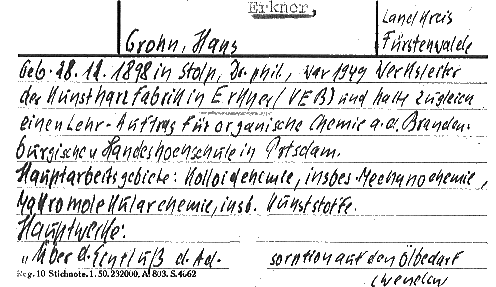 Erkner,
Landkreis
Fürstenwalde
Grohn, Hans
Geb. 28.12.1898 in Stolp, Dr. phil., war 1949 Werksleiter
der Kunstharzfabrik in Erkner (VEB) und hatte zugleich
einen Lehr-Auftrag für organische Chemie a.d. Branden-
burgischen Handeshochschule in Potsdam.
Hauptarbeitsgebiete: Kolloidchemie, insbes. Mechanochemie,
Makromolekularchemie, insb. Kunststoffe.
Hauptwerke:
„Über d. Einfluß d. Ad- sorption auf den Ölbedarf
Reg. 10 Stichnote. 1. 50. 232000. A/803. S. 4662
(wenden